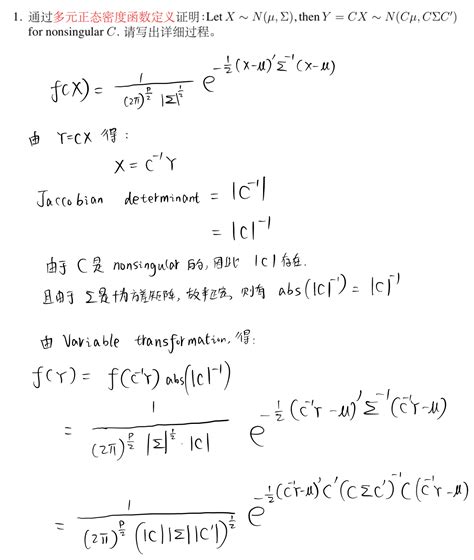 1. 通过多元正态密度函数定义证明:Let X ∼ N(μ, Σ), then Y = CX ∼ N(Cμ, CΣC′)
for nonsingular C. 请写出详细过程。
f(X) = 1 / ((2π)^{p/2} |Σ|^{1/2}) e^{-1/2 (X-μ)′Σ^{-1}(X-μ)}
由 Y=CX 得:
X = C^{-1}Y
Jaccobian determinant = |C^{-1}|
= |C|^{-1}
由于 C 是 nonsingular 的, 因此 |C| 存在.
且由于 Σ是协方差矩阵, 故 则有 abs(|C|^{-1}) = |C|^{-1}
由 Variable transformation, 得:
f(Y) = f(C^{-1}Y) abs(|C|^{-1})
= 1 / ((2π)^{p/2} |Σ|^{1/2} · |C|) e^{-1/2 (C^{-1}Y-μ)′Σ^{-1}(C^{-1}Y-μ)}
= 1 / ((2π)^{p/2} (|C||Σ||C′|)^{1/2}) e^{-1/2 (C^{-1}Y-μ)′C′(CΣC′)^{-1}C(C^{-1}Y-μ)}